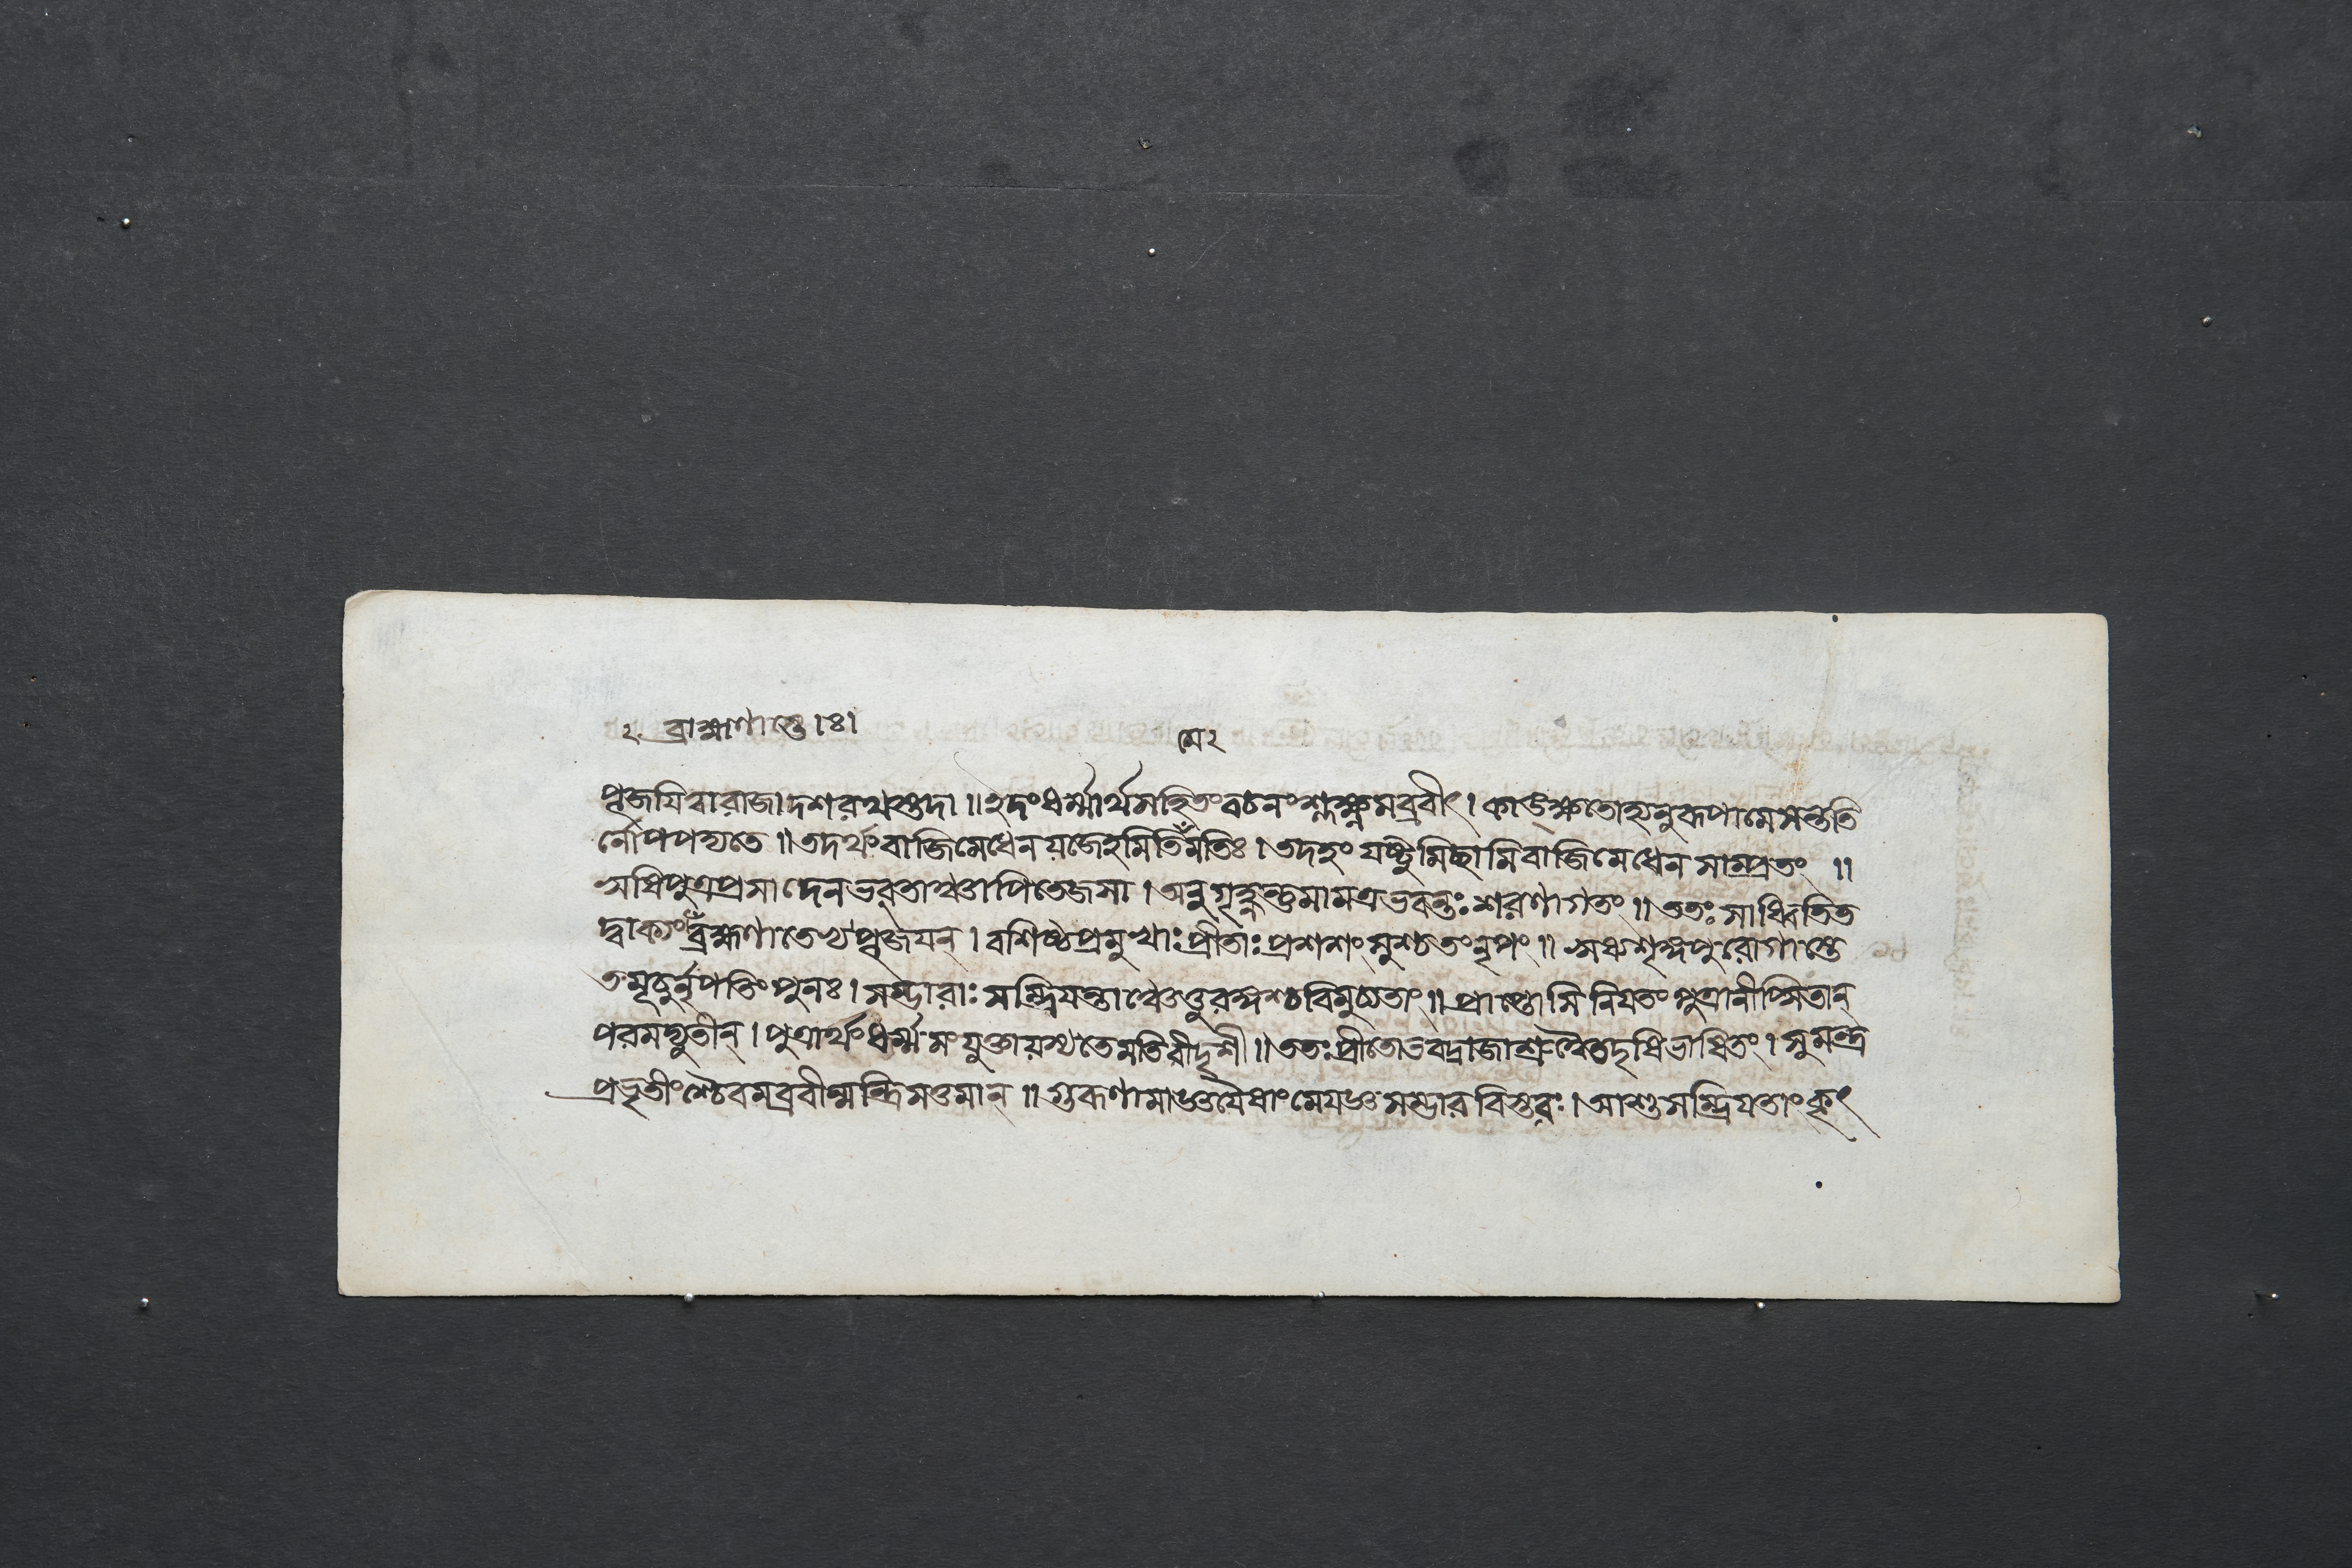 ২ ব্রাহ্মণাস্তে।ঃ।
মে২
পূজযিত্বারাজা দশরথস্তদা॥ইদংধর্ম্মার্থসহিতংবচনংশ্লক্ষ্ণমব্রবীৎ। কাঙ্ক্ষতোহ্যনুরূপামেসন্ততি
র্নোপপদ্যতে॥তদর্থংবাজিমেধেনযজেহমিতির্মেমতিঃ। তদহং যষ্টুমিচ্ছামিবাজিমেধেন সাম্প্রতং ॥
ঋষিপুত্রপ্রসাদেনভবতাঞ্চাপিতেজসা। অনুগৃহ্ণন্তুমামত্রভবন্তঃশরণাগতং॥ততঃসাধ্বিতিত
দ্বাক্যংব্রাহ্মণাতেথপূজযন্। বশিষ্ঠপ্রমুখাঃপ্রীতাঃপ্রশশংসুশ্চতংনৃপং॥ ঋষ্যশৃঙ্গপুরোগাস্তে
তমূচুর্নৃপতিংপুনঃ। সম্ভারাঃসম্ভ্রিযন্তাঞ্চেতুরঙ্গশ্চবিমুচ্যতাং॥ প্রাপ্তোসি নিযতংপুত্রানীপ্সিতান্
পরমদ্যুতীন্। পুত্রার্থংধর্ম্মসংযুক্তাযস্যতেমতিরীদৃশী॥ততঃপ্রীতোভবদ্রাজাশ্রুত্বৈতদৃষিভাষিতং। সুমন্ত্র
প্রভৃতীংশ্চৈবমব্রবীন্মন্ত্রিসত্তমান্॥গুরূণামাজ্ঞযৈষাংমেযজ্ঞসম্ভারবিস্তরঃ। আশুসম্ভ্রিযতাংকৃৎ